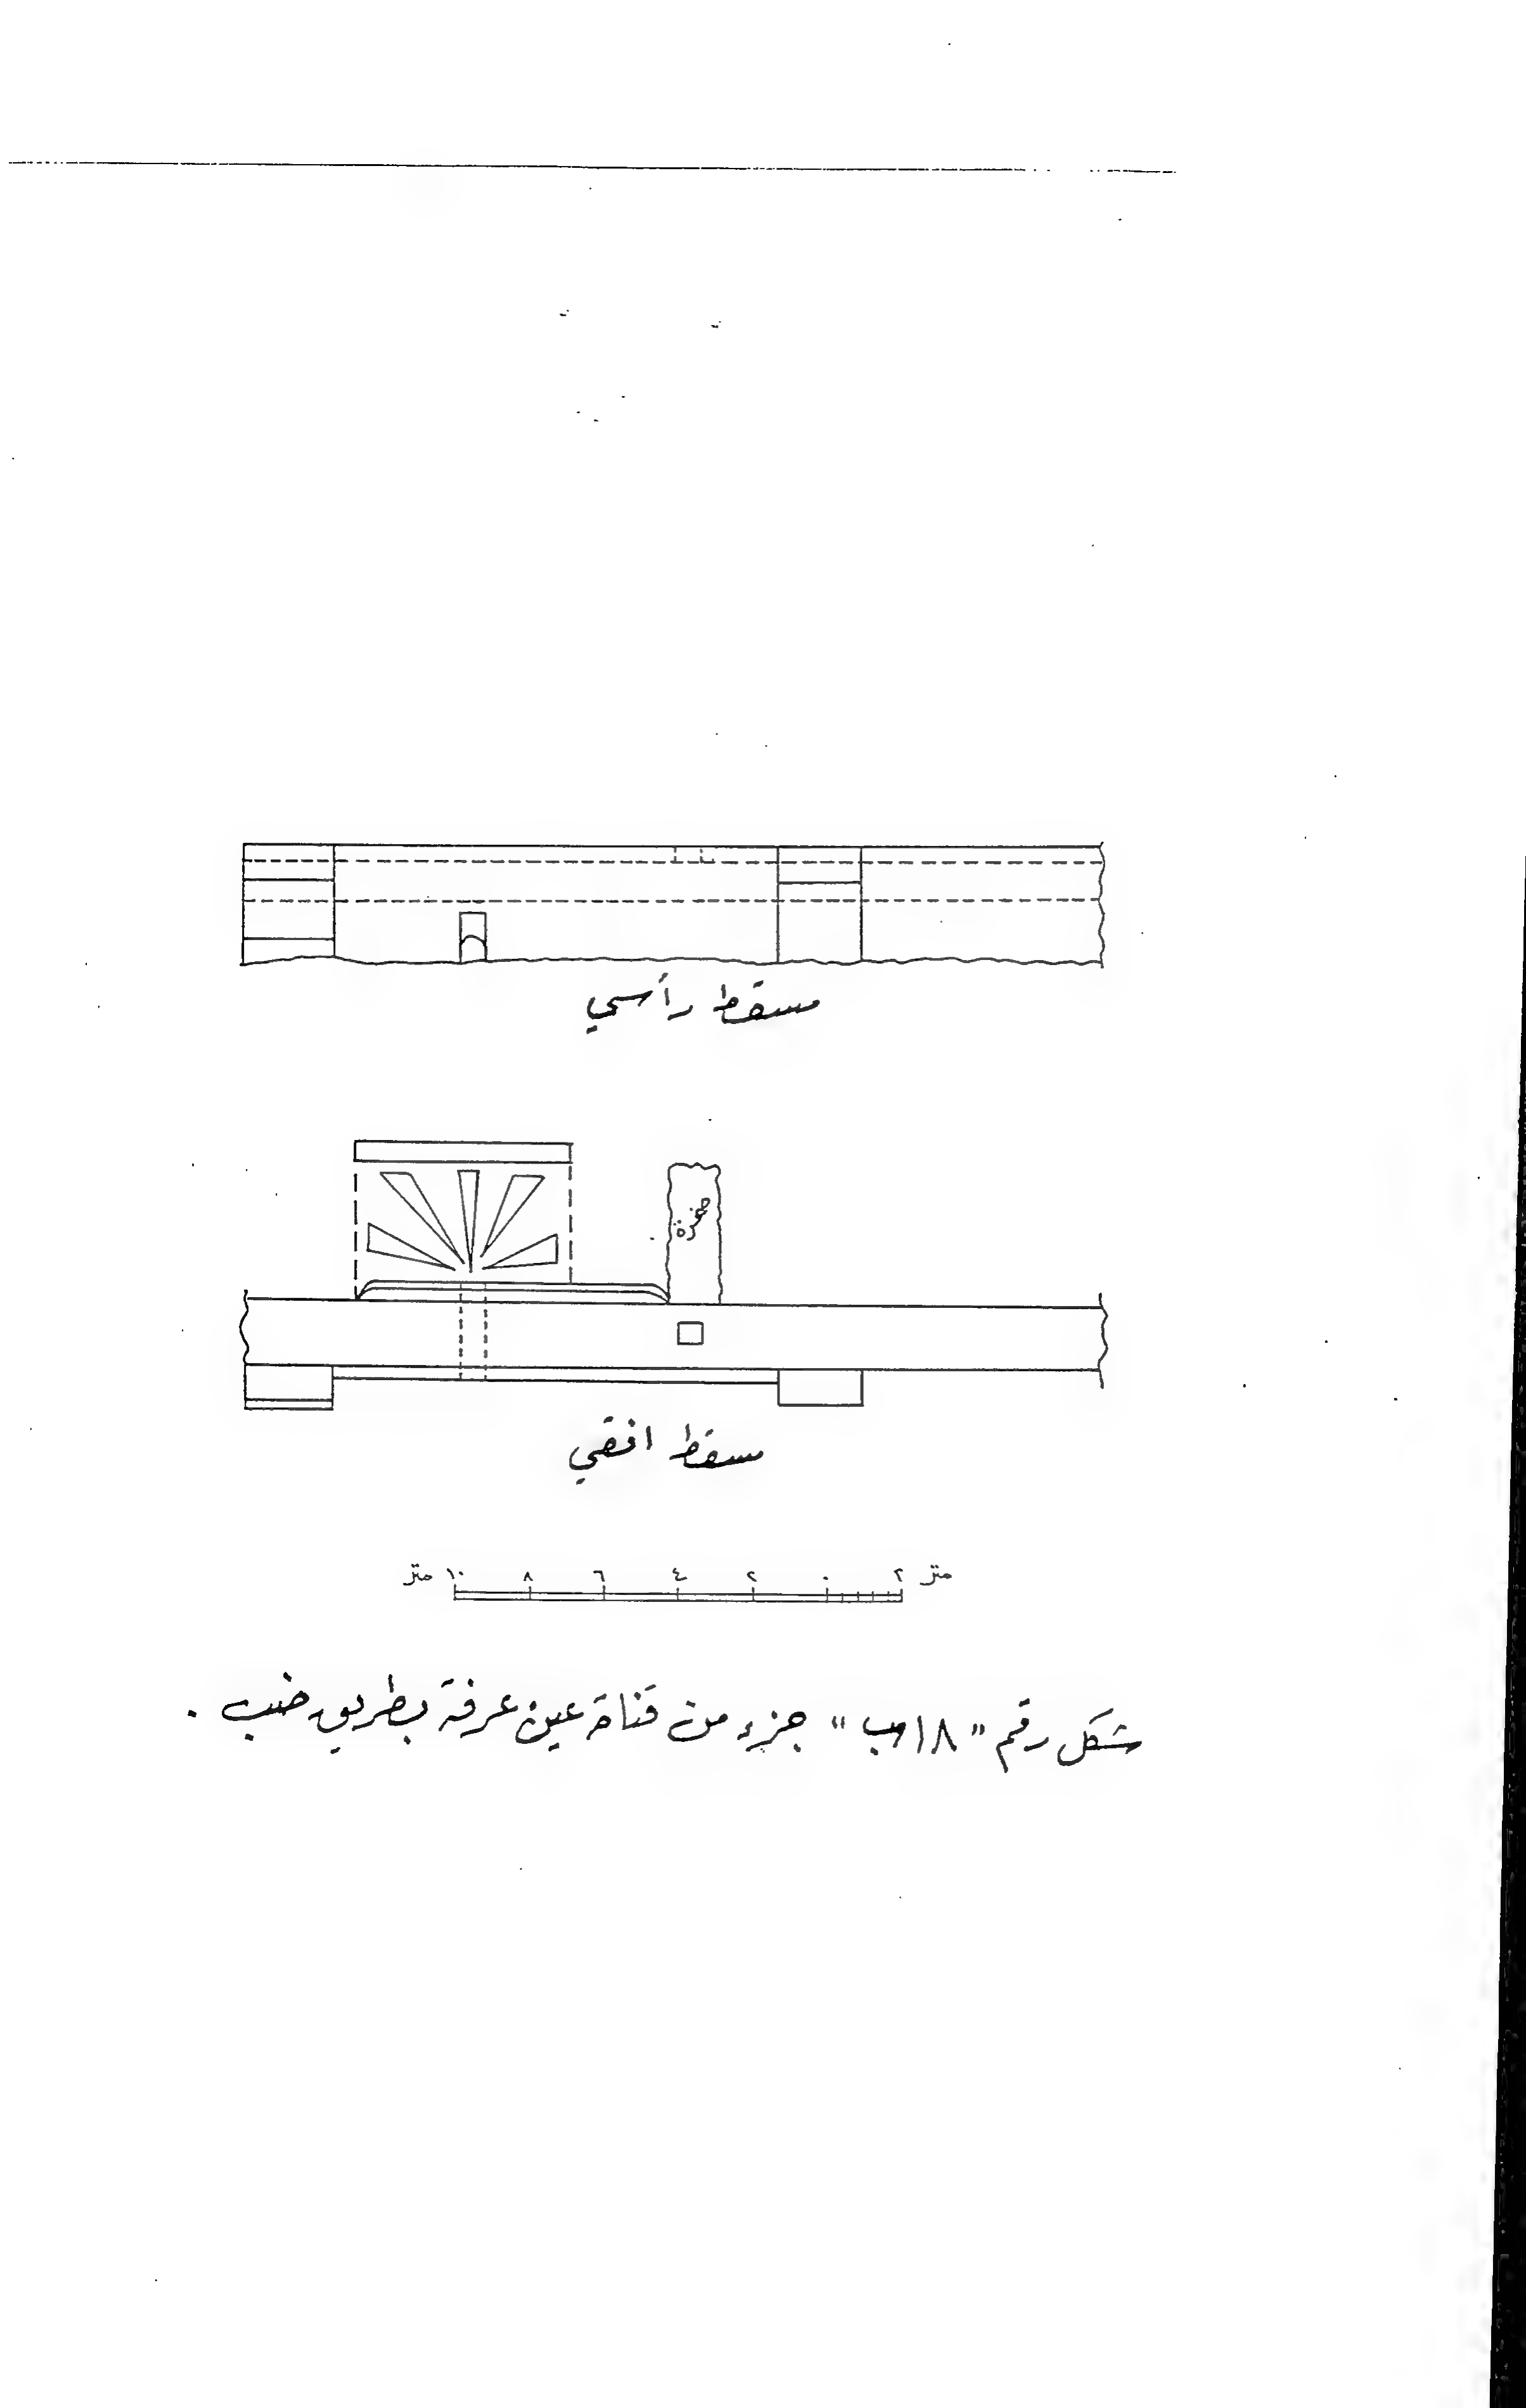 مسقط رأسي
صخرة
مسقط افقي
متر ١٠ ٨ ٦ ٤ ٢ ٠ ٢ متر
شكل رقم "١٨ب" جزء من قناة عين عرفة بطريق ضب .